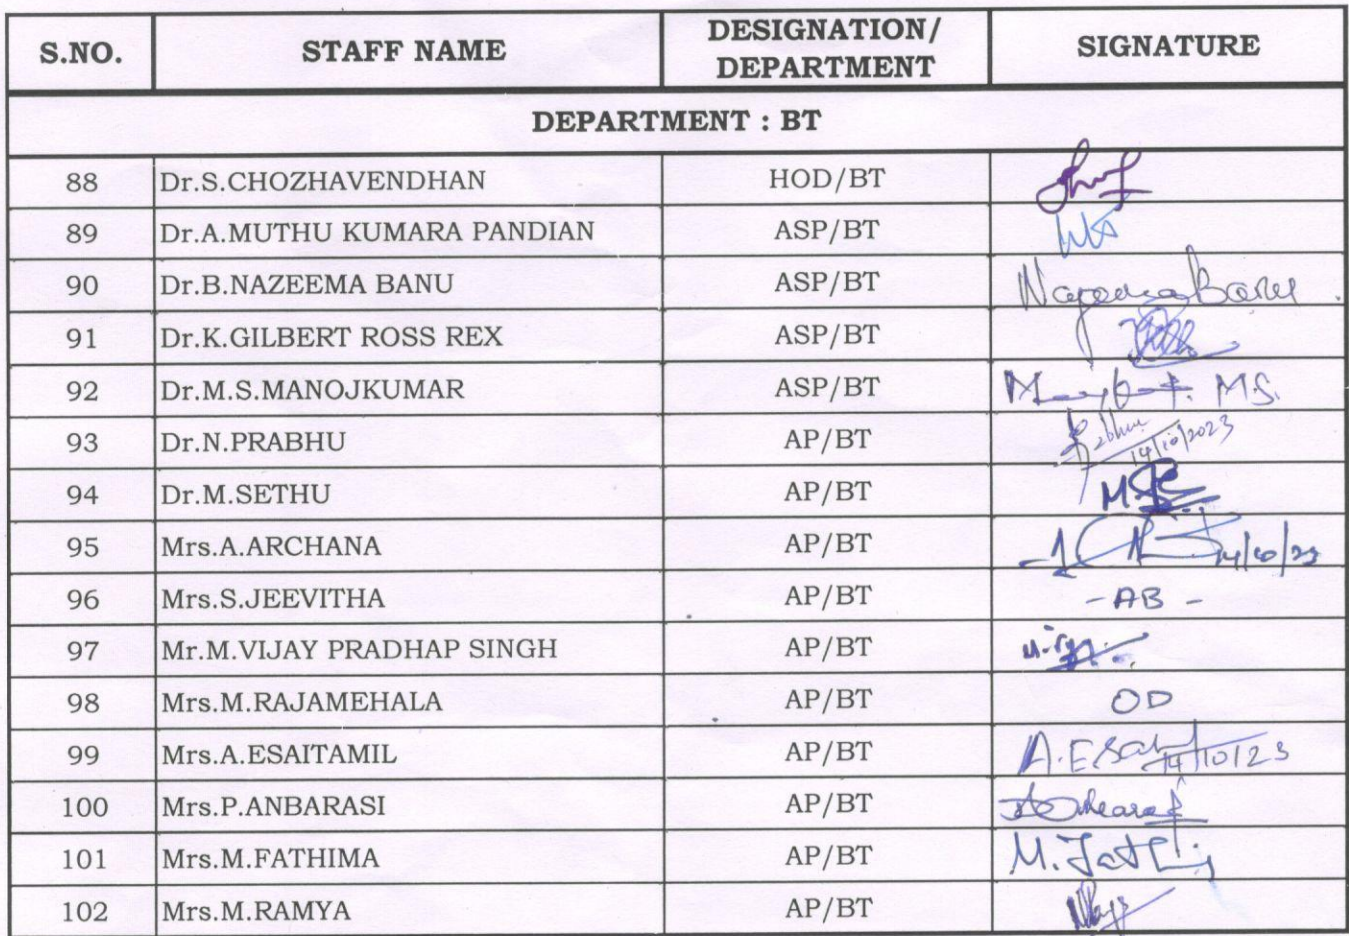 S.NO. STAFF NAME DESIGNATION/ DEPARTMENT SIGNATURE
DEPARTMENT : BT
88 Dr.S.CHOZHAVENDHAN HOD/BT
89 Dr.A.MUTHU KUMARA PANDIAN ASP/BT
90 Dr.B.NAZEEMA BANU ASP/BT Nazeema Banu
91 Dr.K.GILBERT ROSS REX ASP/BT
92 Dr.M.S.MANOJKUMAR ASP/BT M.S.
93 Dr.N.PRABHU AP/BT Prabhu 14/10/2023
94 Dr.M.SETHU AP/BT
95 Mrs.A.ARCHANA AP/BT 14/10/23
96 Mrs.S.JEEVITHA AP/BT - AB -
97 Mr.M.VIJAY PRADHAP SINGH AP/BT
98 Mrs.M.RAJAMEHALA AP/BT OD
99 Mrs.A.ESAITAMIL AP/BT 14/10/23
100 Mrs.P.ANBARASI AP/BT
101 Mrs.M.FATHIMA AP/BT
102 Mrs.M.RAMYA AP/BT